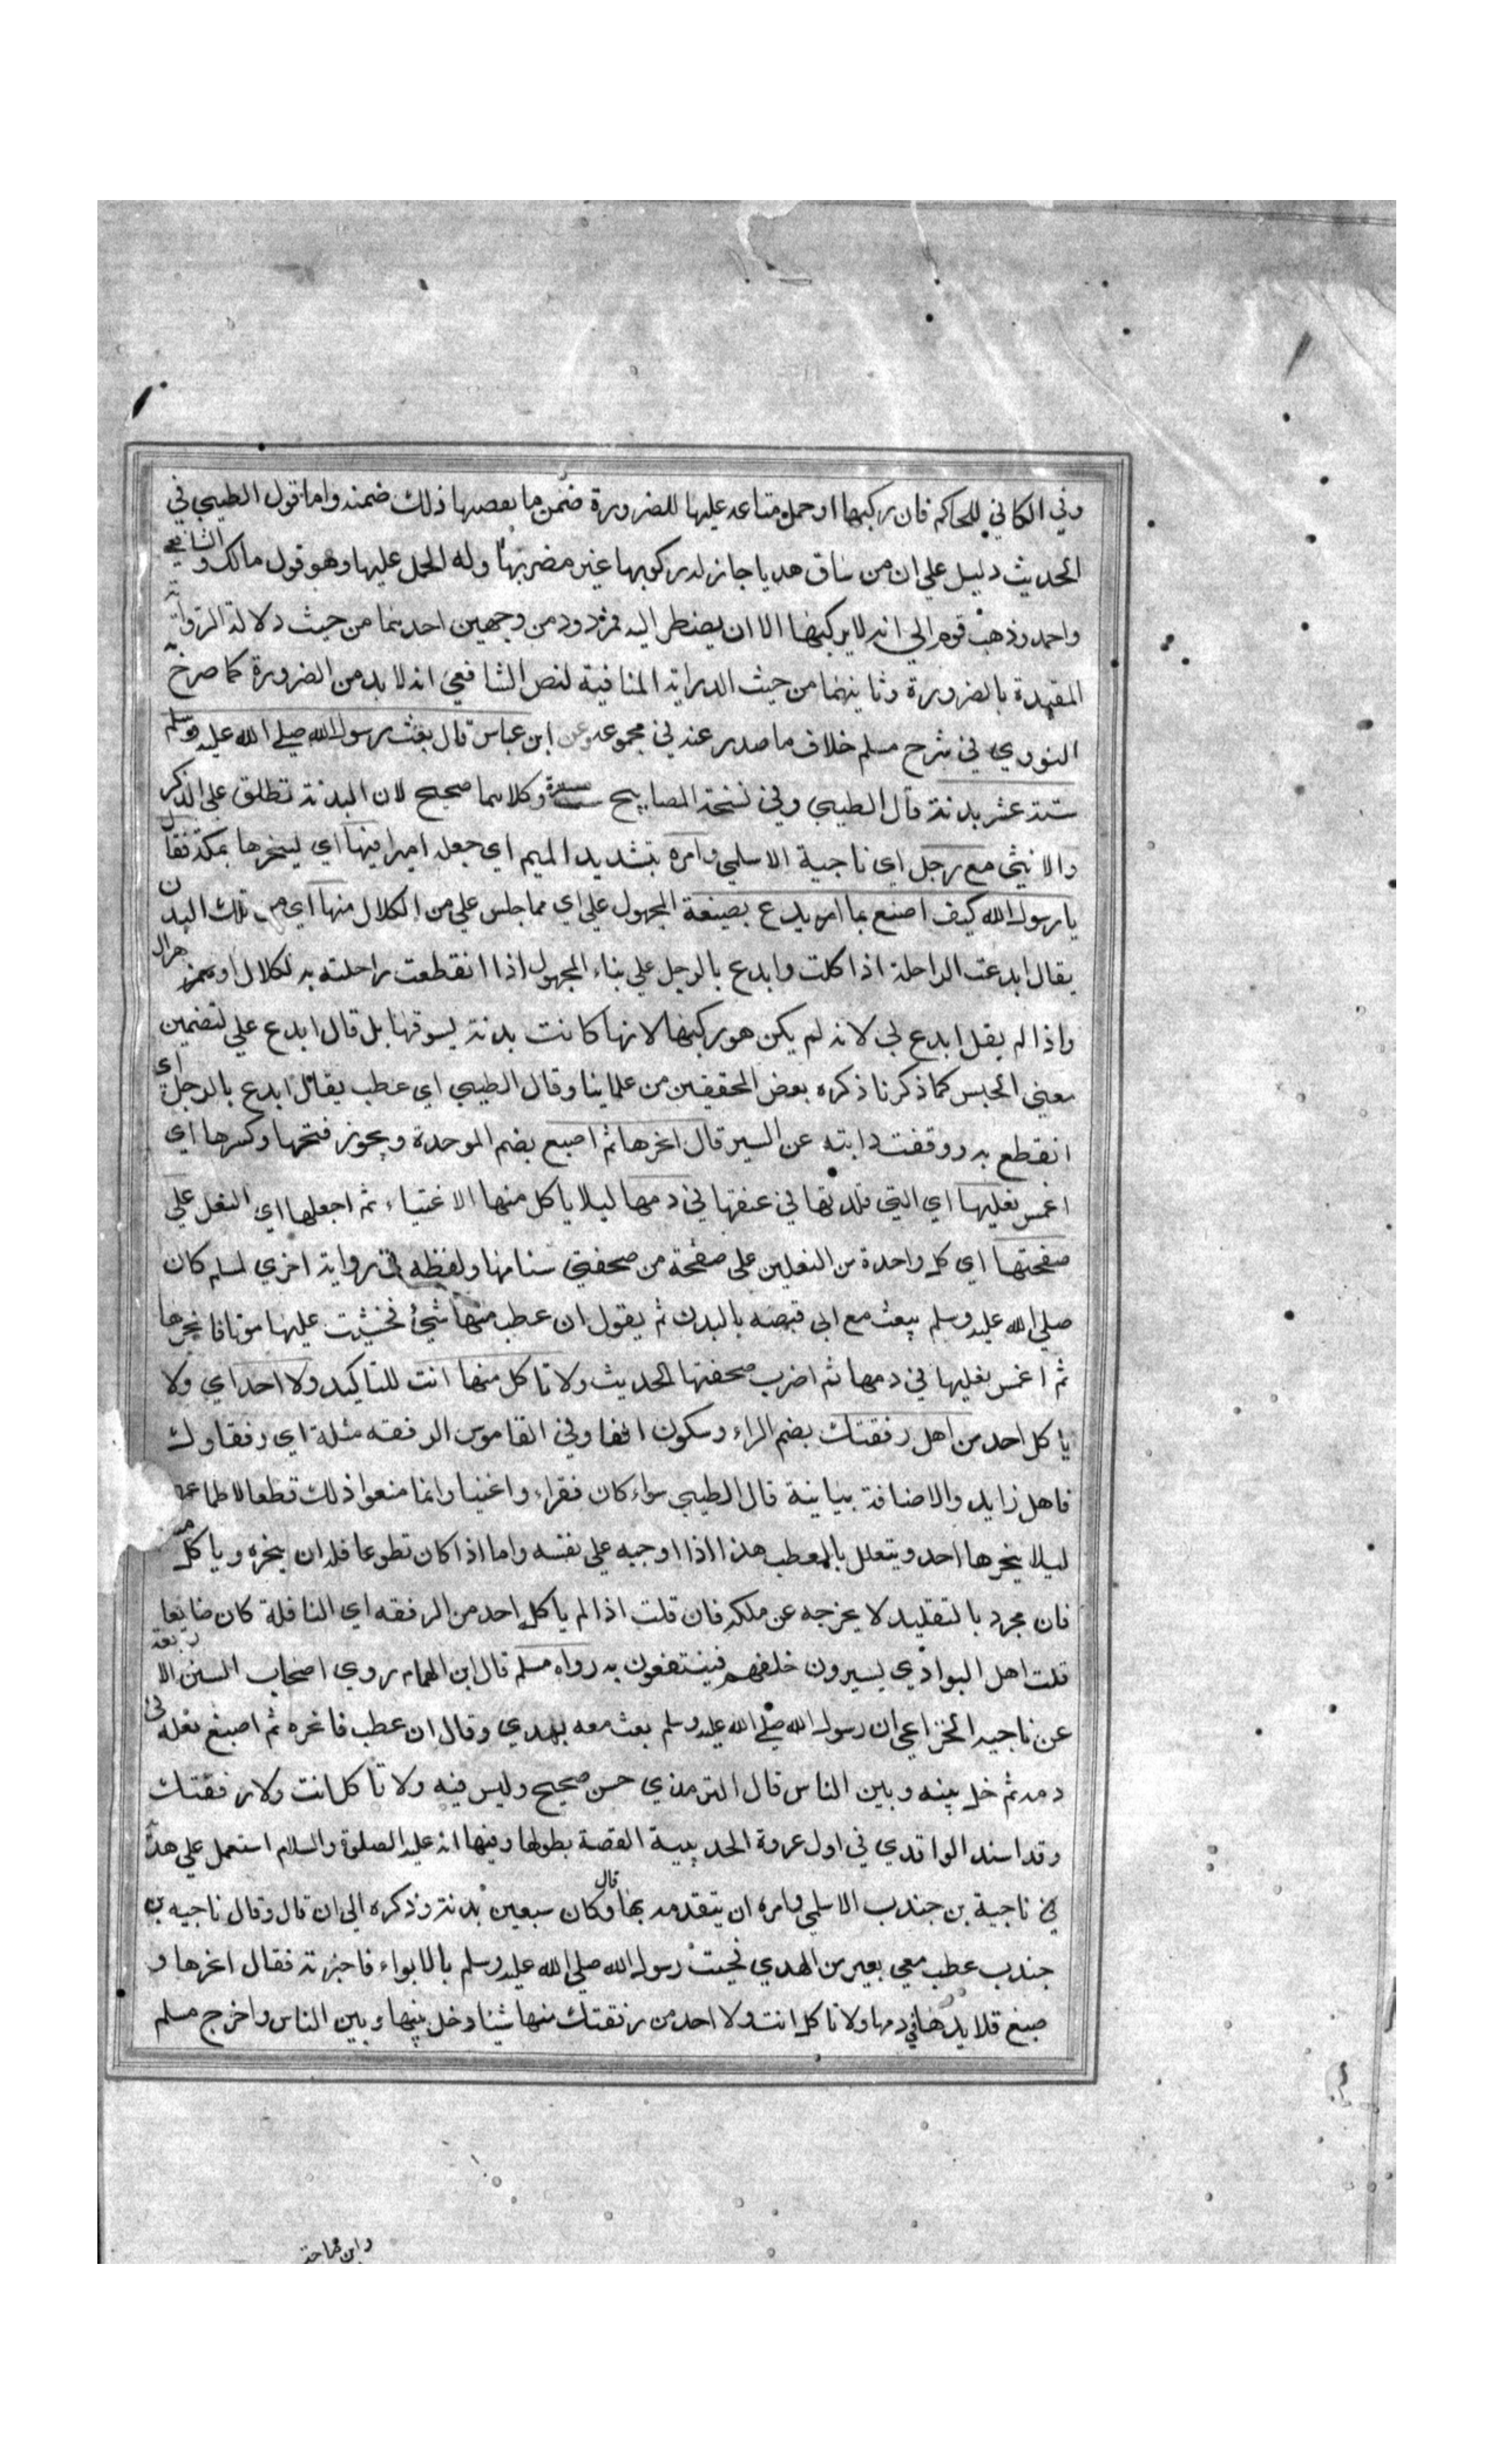 وفي الكافي للحاكم فان ركبها او حمل متاعه عليها للضرورة ضمن ما نقصها ذلك ضمنه واما قول الطيبي في
الحديث دليل علي ان من ساق هديا جاز له ركوبها غير مضر بها وله الحمل عليها وهو قول مالك والشافعي
واحمد وذهب قوم الي انه لا يركبها الا ان يضطر اليه فمردود من وجهين احدهما من حيث دلالة الرواية
المقيدة بالضرورة وثانيهما من حيث الدراية المنافية لنص الشافعي انه لا بد من الضرورة كما صرح به
النووي في شرح مسلم خلاف ما صدر عنه في مجموعه وعن ابن عباس قال بعث رسول الله صلي الله عليه وسلم
ستة عشر بدنة قال الطيبي وفي نسخة المصابيح ست عشرة وكلاهما صحيح لان البدنة تطلق علي الذكر
والانثي مع رجل اي ناجية الاسلمي وامره بتشديد الميم اي جعله اميرا فيها اي لينحرها بمكة فقال
يا رسول الله كيف اصنع بما ابدع بصيغة المجهول علي اي مما جلس علي من الكلال منها اي من تلك البدن
يقال ابدعت الراحلة اذا كلت وابدع بالرجل علي بناء المجهول اذا انقطعت راحلته به لكلال او هزال
واذا لم يقل ابدع لي لانه لم يكن هو ركبها لانها كانت بدنة يسوقها بل قال ابدع علي لتضمين
معني الحبس كما ذكرنا ذكره بعض المحققين من علماينا وقال الطيبي اي عطب يقال ابدع بالرجل اي
انقطع به ووقفت دابته عن السير قال انحرها ثم اصبغ بضم الموحدة ويجوز فتحها وكسرها اي
اغمس نعليها اي التي قلدتها في عنقها في دمها ليلا ياكل منها الاغنياء ثم اجعلها اي النعل علي
صفحتها اي كل واحدة من النعلين علي صفحة من صحفتي سنامها ولفظه في رواية اخري لمسلم كان
صلي الله عليه وسلم يبعث مع ابي قبيصه بالبدن ثم يقول ان عطب منها شيئ فخشيت عليها موتا فانحرها
ثم اغمس نعليها في دمها ثم اضرب صحفتها الحديث ولا تاكل منها انت للتاكيد ولا احد اي ولا
ياكل احد من اهل رفقتك بضم الراء وسكون الفا وفي القاموس الرفقه مثلثة اي رفقاوك
فاهل زايد والاضافة بيانية قال الطيبي سواء كان فقراء واغنيا وانما منعوا ذلك قطعا لاطماعهم
ليلا ينحرها احد ويتعلل بالعطب هذا اذا اوجبه علي نفسه واما اذا كان تطوعا فله ان ينحره وياكل منه
فان مجرد بالتقليد لا يخرجه عن ملكه فان قلت اذا لم ياكل احد من الرفقه اي النافلة كان ضايعا
قلت اهل البوادي يسيرون خلفهم فينتفعون به رواه مسلم قال ابن الهمام روي اصحاب السنن الاربعة
عن ناجيه الخزاعي ان رسول الله صلي الله عليه وسلم بعث معه بهدي وقال ان عطب فانحره ثم اصبغ نعله في
دمه ثم خل بينه وبين الناس قال الترمذي حسن صحيح وليس فيه ولا تاكل انت ولا رفقتك
وقد اسند الواقدي في اول غزوة الحديبية القصة بطولها وفيها انه عليه الصلوة والسلام استعمل علي هديه
ناجية بن جندب الاسلمي وامره ان يتقدمه بها قال وكان سبعين بدنة وذكره الي ان قال وقال ناجيه بن
جندب عطب معي بعير من الهدي فجيت رسول الله صلي الله عليه وسلم بالابواء فاخبرته فقال انحرها و
صبغ قلايدها في دمها ولا تاكل انت ولا احد من رفقتك منها شيئا وخل بينها وبين الناس واخرج مسلم
وابن ماجة